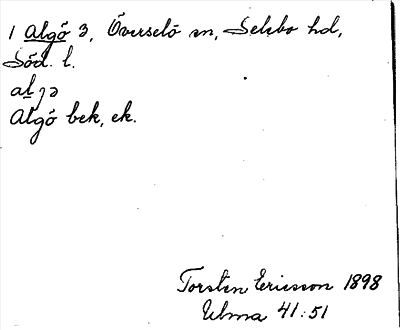 1 Algö 3, Överselö sn, Selebo hd,
Söd. l.
alɡə
Algö bek, ek.
Torsten Ericsson 1898
Ulma 41:51